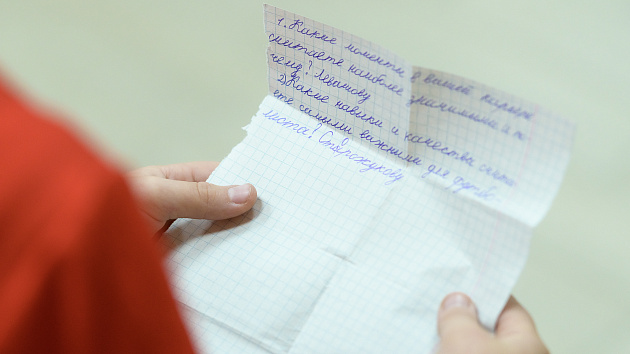 1. Какие моменты в вашей карьере
считаете наиболее значимыми и по
чему? Левашову
2) Какие навыки и качества счита
ете самыми важными для футбо
листа? Сторожукову